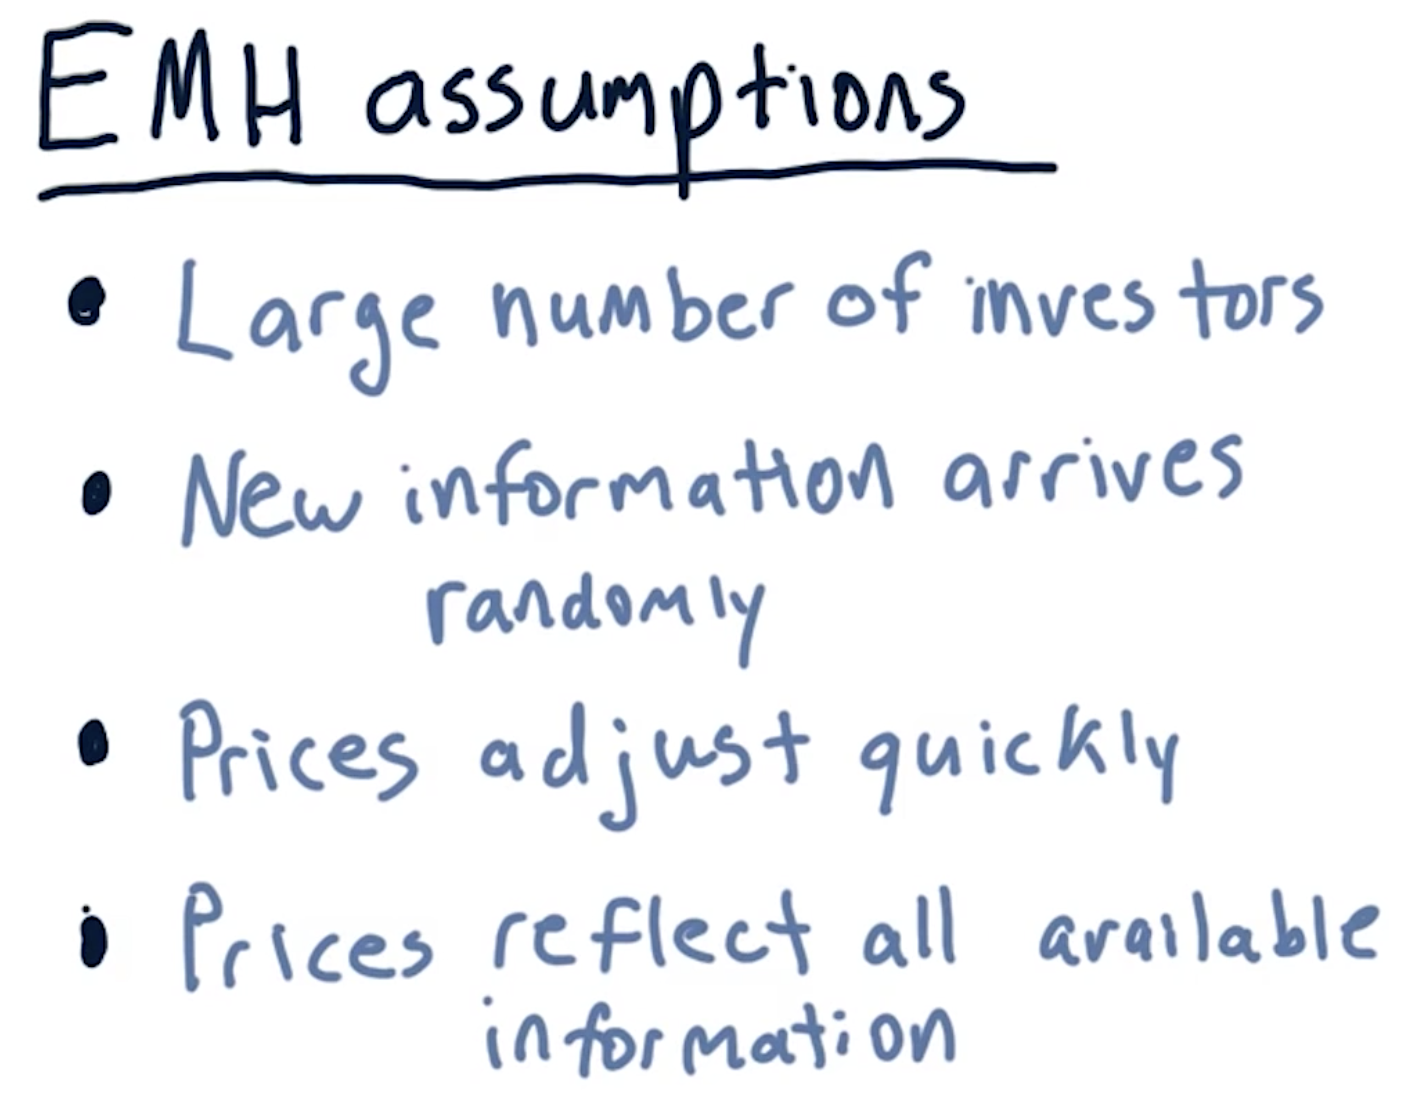 EMH assumptions
• Large number of investors
• New information arrives
randomly
• Prices adjust quickly
• Prices reflect all available
information